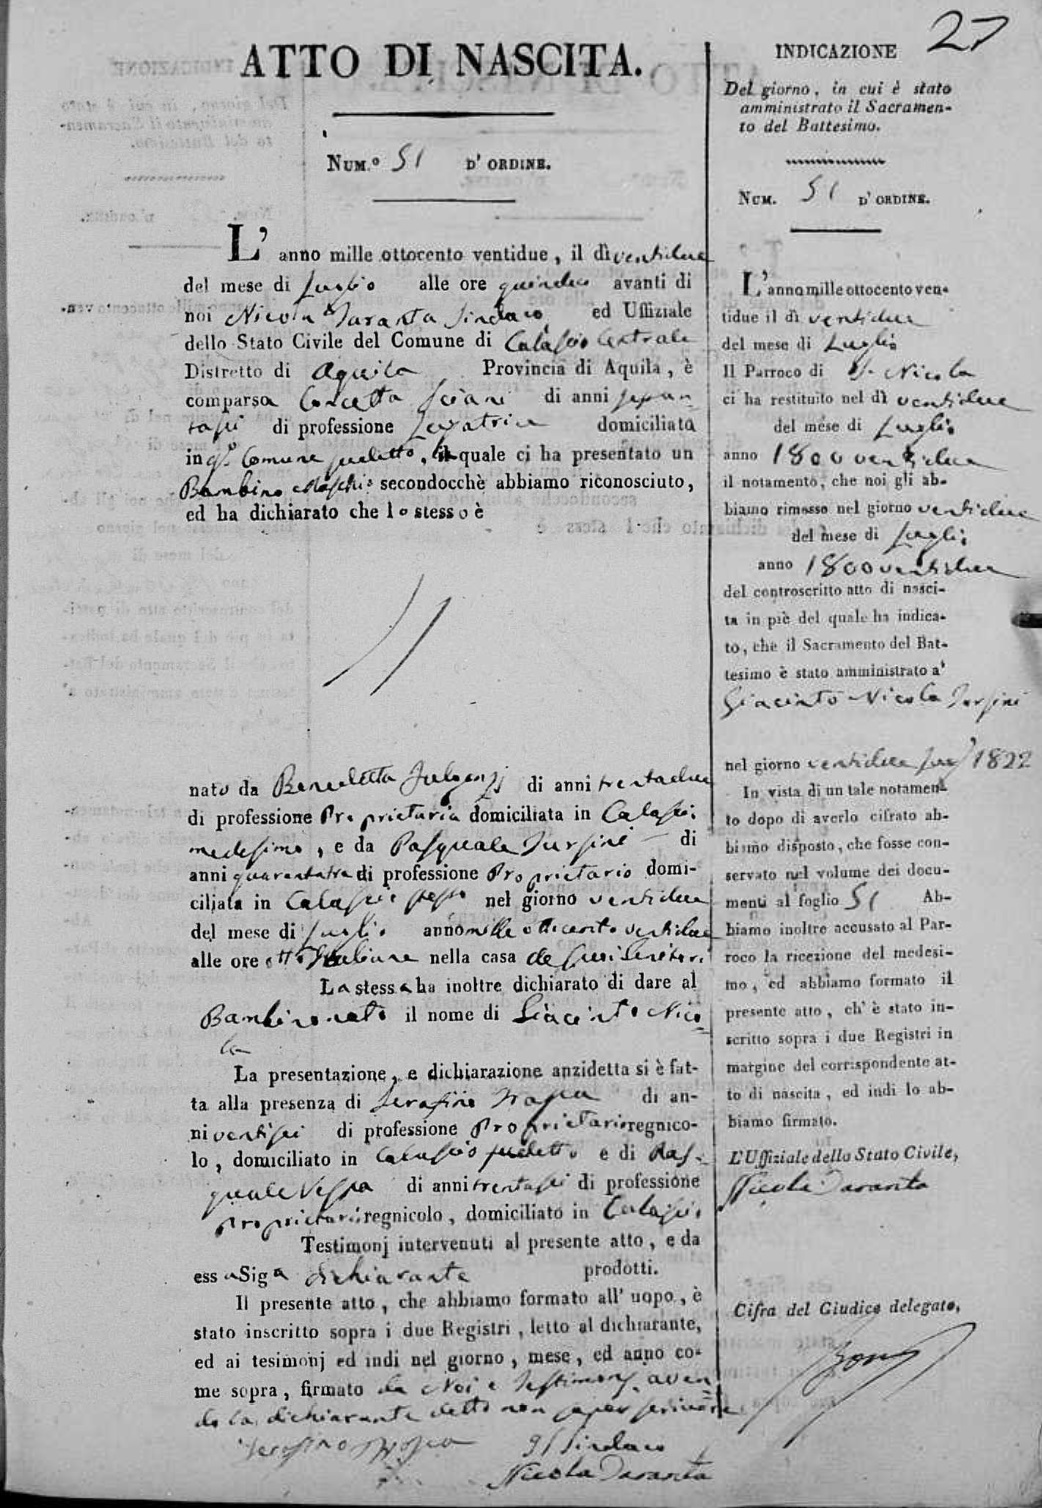 27
ATTO DI NASCITA.
NUM.º 51 D'ORDINE.
L' anno mille ottocento ventidue, il dì ventidue
del mese di Luglio alle ore quindici avanti di
noi Nicola Taranta Sindaco ed Uffiziale
dello Stato Civile del Comune di Calascio Centrale
Distretto di Aquila Provincia di Aquila, è
comparsa Concetta di anni
di professione Levatrice domiciliata
in qº Comune sudetto, la quale ci ha presentato un
Bambino Maschio secondocchè abbiamo riconosciuto,
ed ha dichiarato che lo stesso è
nato da Benedetta Fulgenzj di anni trentadue
di professione Proprietaria domiciliata in Calascio
medesimo, e da Pasquale Tursini di
anni quarantatre di professione Proprietario domi-
ciliata in Calascio stesso nel giorno ventidue
del mese di Luglio anno mille ottocento ventidue
alle ore otto Italiane nella casa de suoi Genitori
La stessa ha inoltre dichiarato di dare al
Bambino nato il nome di Giacinto Nico=
la
La presentazione, e dichiarazione anzidetta si è fat-
ta alla presenza di Serafino di an-
ni ventisei di professione Proprietario regnico-
lo, domiciliato in Calascio sudetto e di Pas=
quale Vespa di anni trentasei di professione
proprietario regnicolo, domiciliato in Calascio
Testimonj intervenuti al presente atto, e da
essa Sigª dichiarante prodotti.
Il presente atto, che abbiamo formato all' uopo, è
stato inscritto sopra i due Registri, letto al dichiarante,
ed ai tesimonj ed indi nel giorno, mese, ed anno co-
me sopra, firmato da Noi e Testimonj, aven=
do la dichiarante detto non saper scrivere
Serafino
Il Sindaco
Nicola Taranta
INDICAZIONE
Del giorno, in cui è stato
amministrato il Sacramen-
to del Battesimo.
NUM. 51 D'ORDINE.
L'anno mille ottocento ven-
tidue il dì ventidue
del mese di Luglio
Il Parroco di S. Nicola
ci ha restituito nel dì ventidue
del mese di Luglio
anno 1800 ventidue
il notamento, che noi gli ab-
biamo rimesso nel giorno ventidue
del mese di Luglio
anno 1800 ventidue
del controscritto atto di nasci-
ta in piè del quale ha indica-
to, che il Sacramento del Bat-
tesimo è stato amministrato a'
Giacinto Nicola Tursini
nel giorno ventidue Lugº 1822
In vista di un tale notamen-
to dopo di averlo cifrato ab-
biamo disposto, che fosse con-
servato nel volume dei docu-
menti al foglio 51 Ab-
biamo inoltre accusato al Par-
roco la ricezione del medesi-
mo, ed abbiamo formato il
presente atto, ch' è stato in-
scritto sopra i due Registri in
margine del corrispondente at-
to di nascita, ed indi lo ab-
biamo firmato.
L'Uffiziale dello Stato Civile,
Nicola Taranta
Cifra del Giudice delegato,